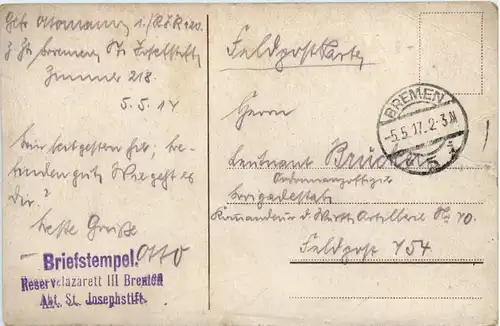 Gefr. Ottomann 1./R.J.R 120.
z. Zt. Bremen St. Josefstift
Zimmer 218.
5.5.17
Bin seit gestern hier; be-
finden gut. Wie geht es
Dir?
Beste Grüße
Otto
Briefstempel.
Reservelazarett III Bremen
Abt. St. Josephstift.
Feldpostkarte
Herrn
Leutnant Brücken
Ordonnanzoffizier
Brigadestab
Kommandeur d. Württ. Artillerie No. 70.
Feldpost 754
BREMEN
-5.5.17.2-3.N
5